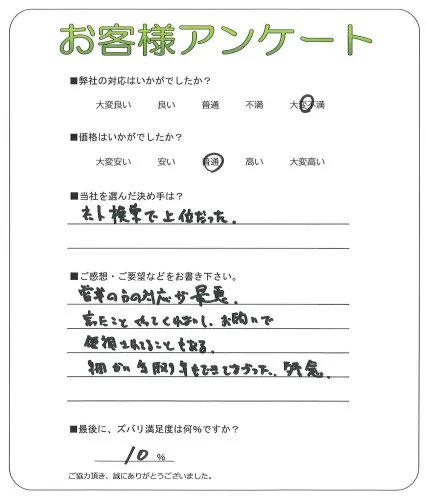 お客様アンケート
■弊社の対応はいかがでしたか？
大変良い 良い 普通 不満 大変不満
■価格はいかがでしたか？
大変安い 安い 普通 高い 大変高い
■当社を選んだ決め手は？
ネト検索で上位だった。
■ご感想・ご要望などをお書き下さい。
営業の方の対応が最悪。
言ったことやってくれないし、お願いで
されてることもある。
細かい もできてなかった。残念。
■最後に、ズバリ満足度は何%ですか？
10 %
ご協力頂き、誠にありがとうございました。